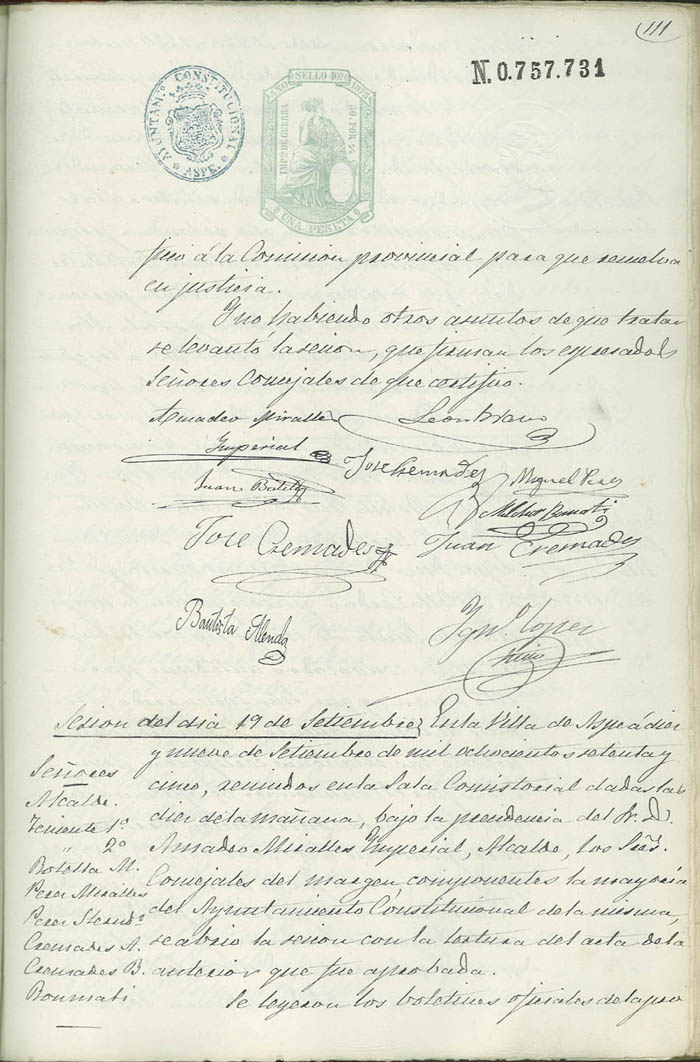 111
N.0.757.731
AYUNTAM.º CONSTITUCIONAL
ASPE.
AÑO SELLO 10º 1875
IMP.to DE GUERRA
50 POR %
UNA PESETA
puso á la Comision provincial para que resuelva
en justicia.
Y no habiendo otros asuntos de que tratar
se levantó la sesion, que firman los expresados
Señores Concejales de que certifico.
Amadeo Miralles
Imperial
Leon Bravo
Jose Cremades
Juan Botella
Miguel Perez
Melchor Boumati
Jose Cremades
Juan Cremades
Bautista Alenda
Ign.º Lopez
Sesion del dia 19 de Setiembre} En la Villa de Aspe á diez
y nueve de Setiembre de mil ochocientos setenta y
cinco, reunidos en la Sala Comistorial dadas las
diez de la mañana, bajo la presidencia del Sr. D.
Amadeo Miralles Imperial, Alcalde, los Sres.
Concejales del margen, componentes la mayoria
del Ayuntamiento Constitucional de la misma,
se abrio la sesion con la lectura del acta de la
anterior que fue aprobada.
Se leyeron los boletines oficiales de la pro
Señores
Alcalde.
Teniente 1º
" 2º
Botella M.
Perez Miralles
Perez
Cremades A.
Cremades B.
Boumati